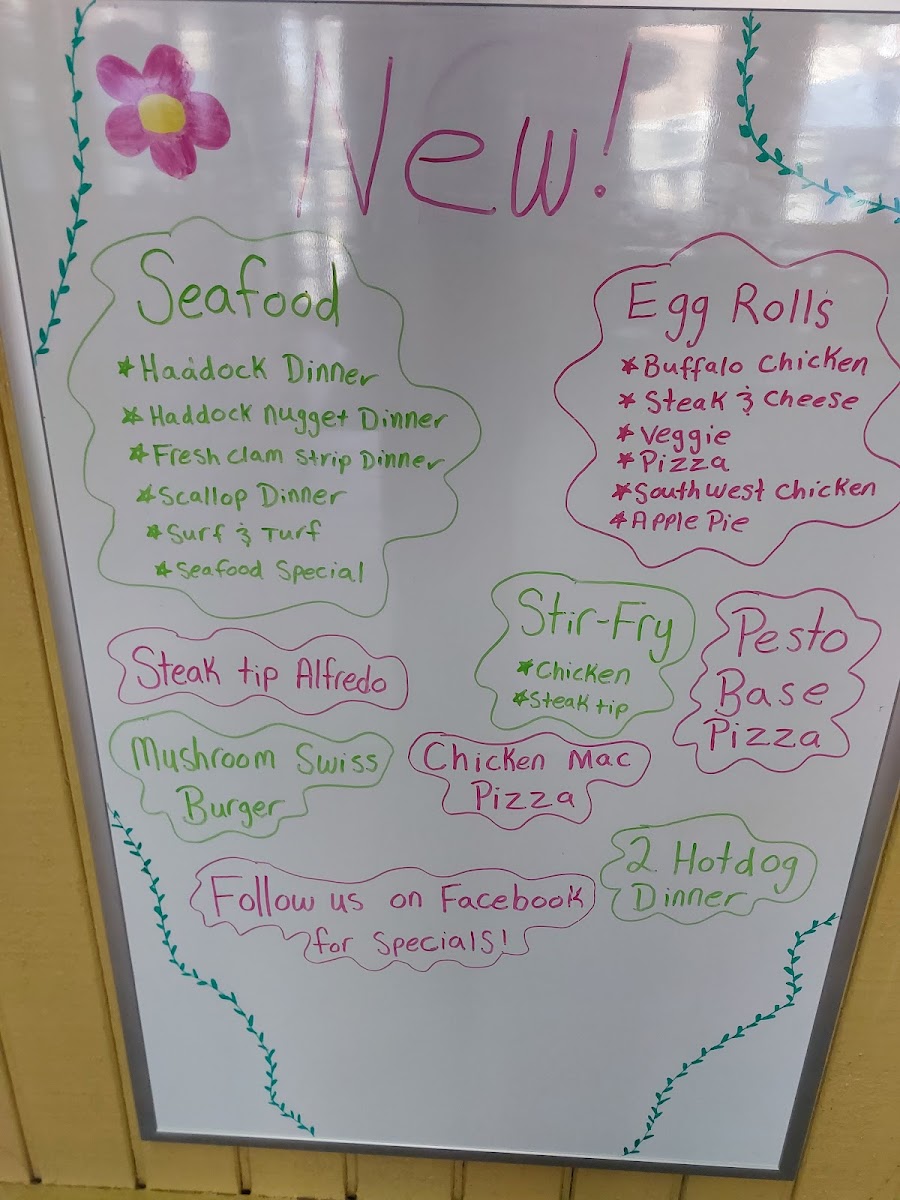 New!
Seafood
*Haddock Dinner
*Haddock nugget Dinner
*Fresh clam strip Dinner
*Scallop Dinner
*Surf & Turf
*Seafood Special
Egg Rolls
*Buffalo Chicken
*Steak & Cheese
*Veggie
*Pizza
*Southwest Chicken
*Apple Pie
Stir-Fry
*Chicken
*Steak tip
Pesto
Base
Pizza
Steak tip Alfredo
Mushroom Swiss
Burger
Chicken Mac
Pizza
2 Hotdog
Dinner
Follow us on Facebook
for specials!